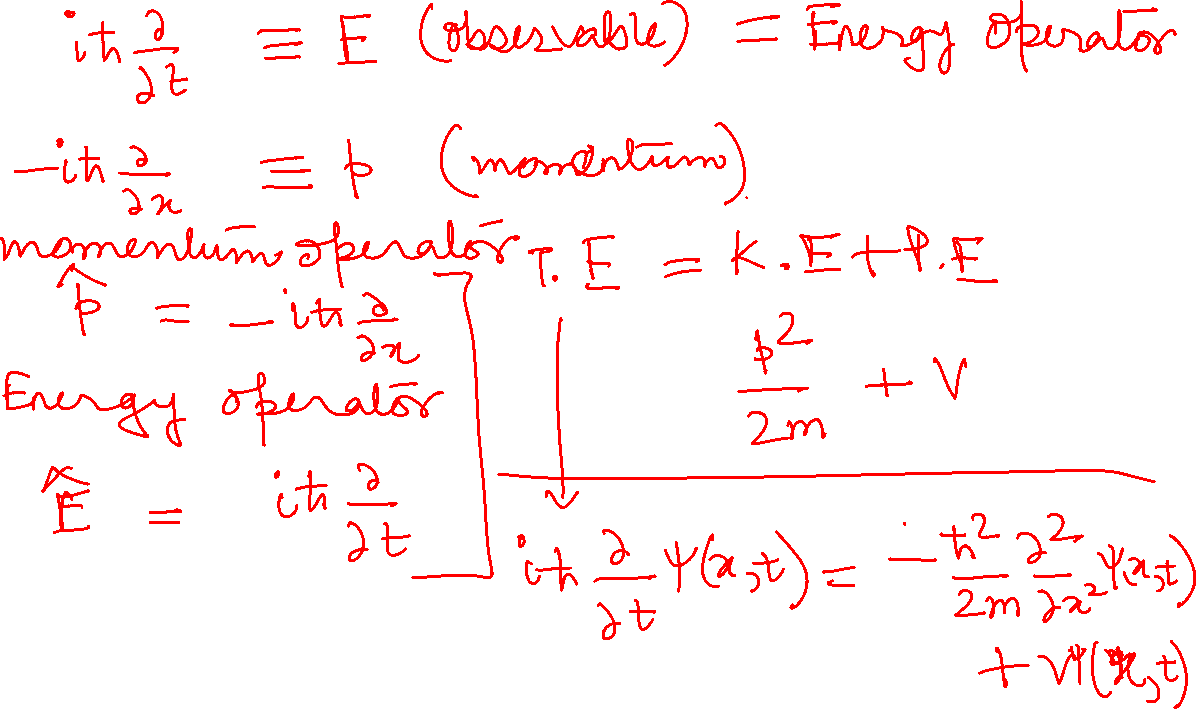 iħ ∂/∂t ≡ E (observable) = Energy operator
-iħ ∂/∂x ≡ p (momentum)
momentum operator
p̂ = -iħ ∂/∂x
Energy operator
Ê = iħ ∂/∂t
T.E = K.E + P.E
p²/2m + V
iħ ∂/∂t Ψ(x,t) = -ħ²/2m ∂²/∂x² Ψ(x,t)
+ VΨ(x,t)